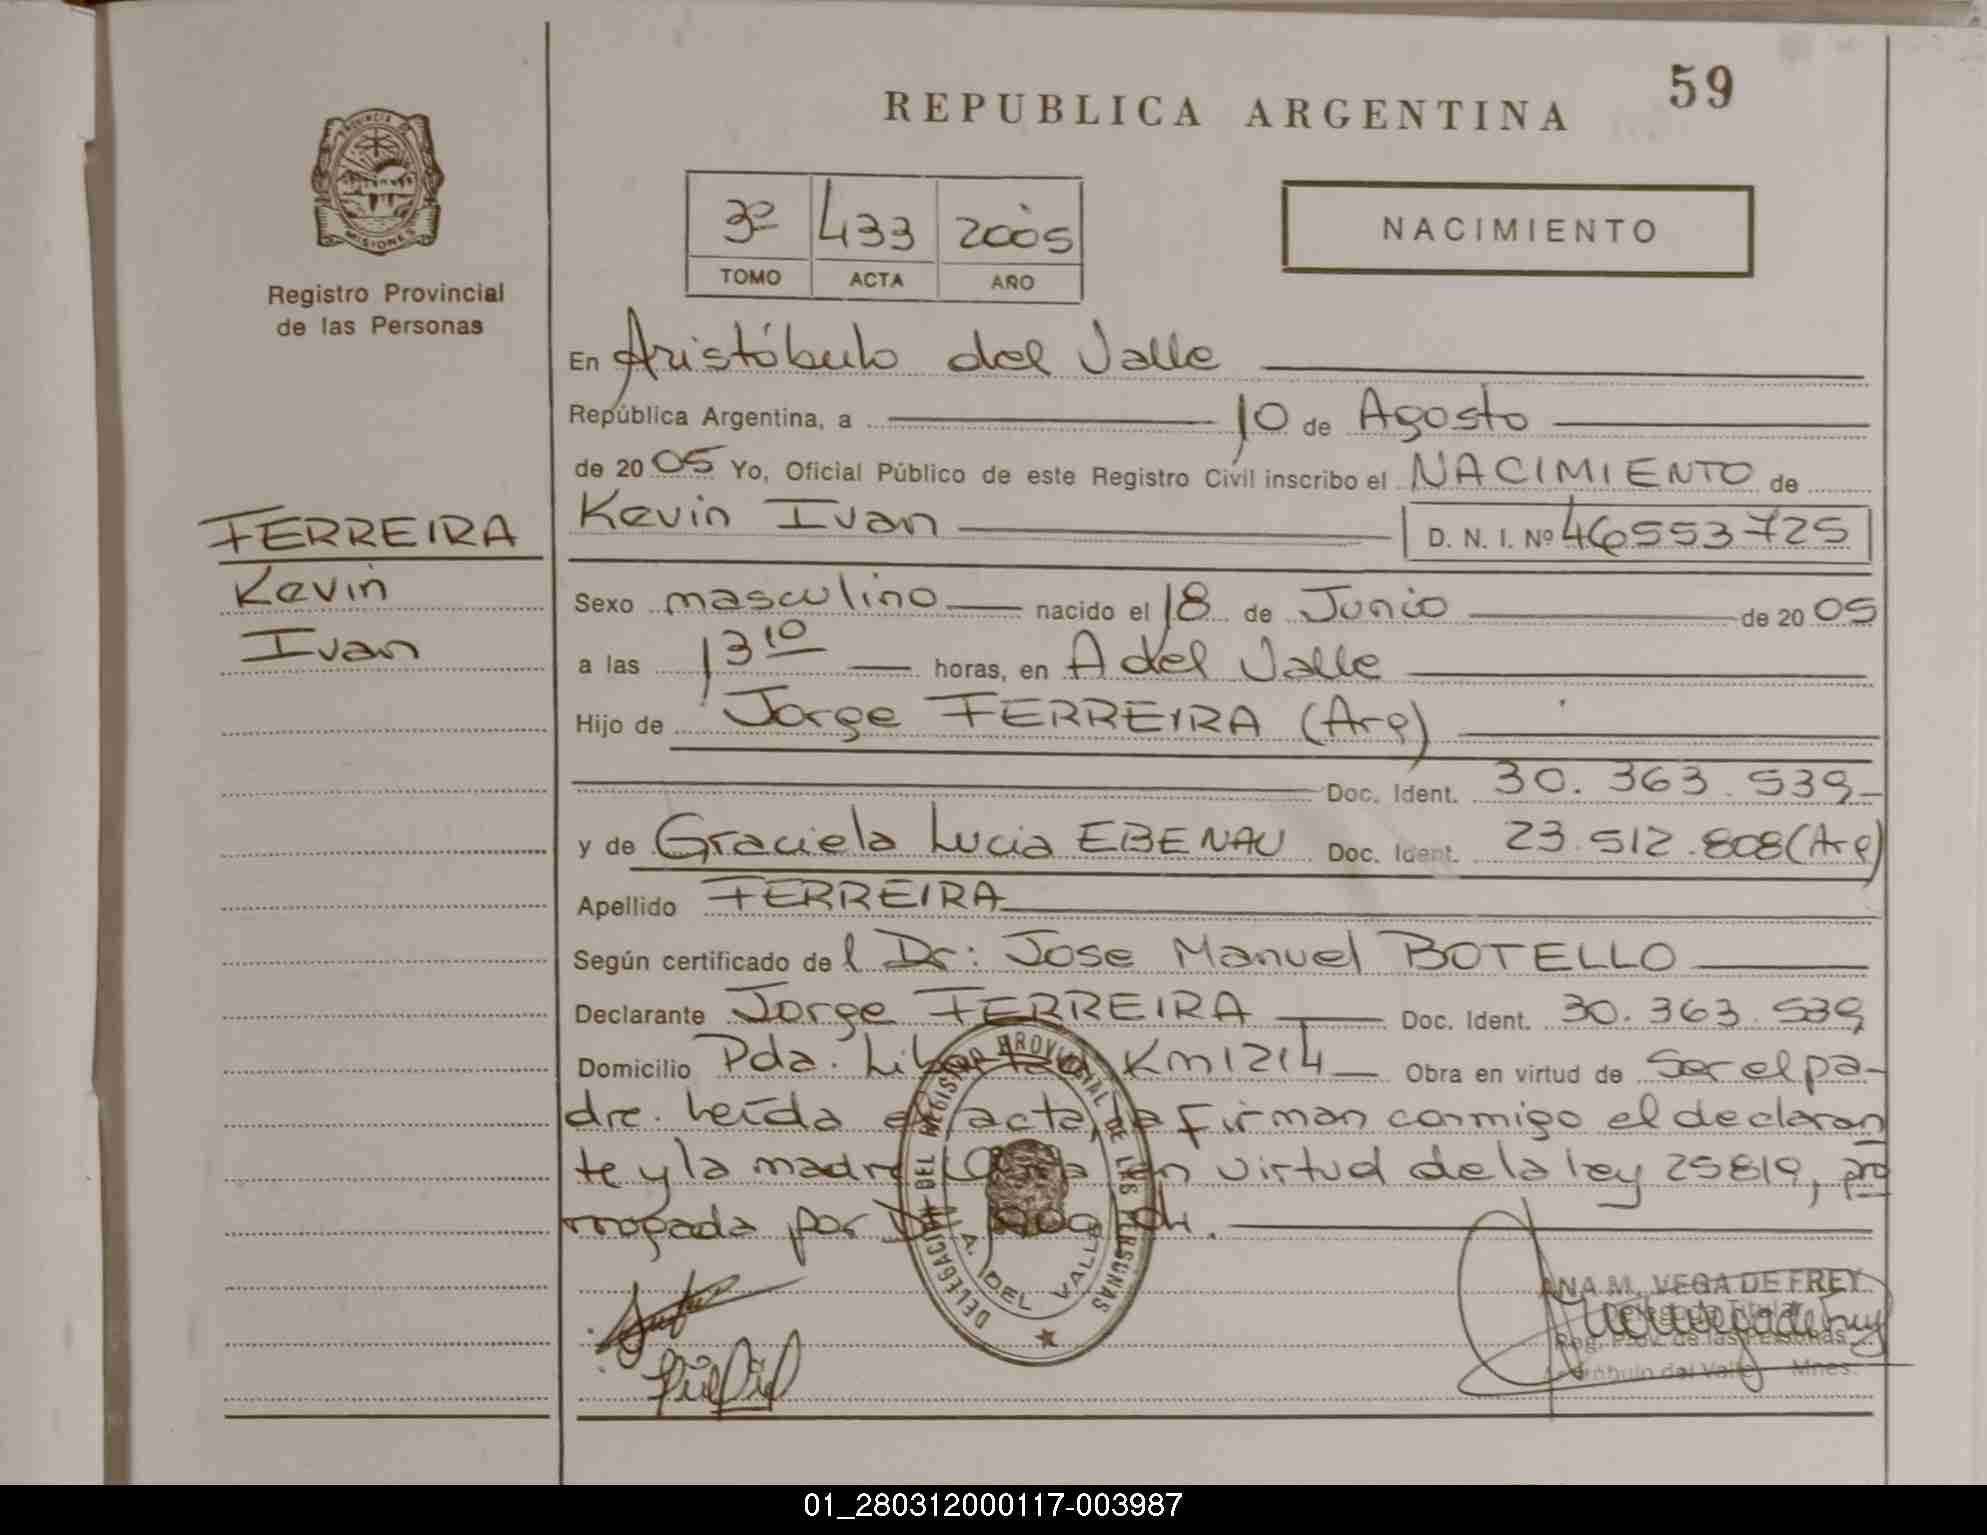 59
REPUBLICA ARGENTINA
PROVINCIA DE
MISIONES
Registro Provincial
de las Personas
3º 433 2005
TOMO ACTA AÑO
NACIMIENTO
En Aristóbulo del Valle
República Argentina, a 10 de Agosto
de 2005 Yo, Oficial Público de este Registro Civil inscribo el NACIMIENTO de
FERREIRA
Kevin
Ivan
Kevin Ivan D. N. I. Nº 46553725
Sexo masculino nacido el 18 de Junio de 2005
a las 13 10 horas, en A del Valle
Hijo de Jorge FERREIRA (Arg)
Doc. Ident. 30.363.539
y de Graciela Lucia EBENAU Doc. Ident. 23.512.808 (Arg)
Apellido FERREIRA
Según certificado del Dr: Jose Manuel BOTELLO
Declarante Jorge FERREIRA Doc. Ident. 30.363.539
Domicilio Pda. Libertad Km1214 Obra en virtud de ser el pa-
dre. Leída el acta, la firman conmigo el declaran
te y la madre en virtud de la ley 25819, pro
rrogada por
DELEGACION DEL REGISTRO PROVINCIAL DE LAS PERSONAS
A. DEL VALLE
ANA M. VEGA DE FREY
Delegada Titular
Reg. Prov. de las Personas
Aristóbulo del Valle Mnes.
01_280312000117-003987